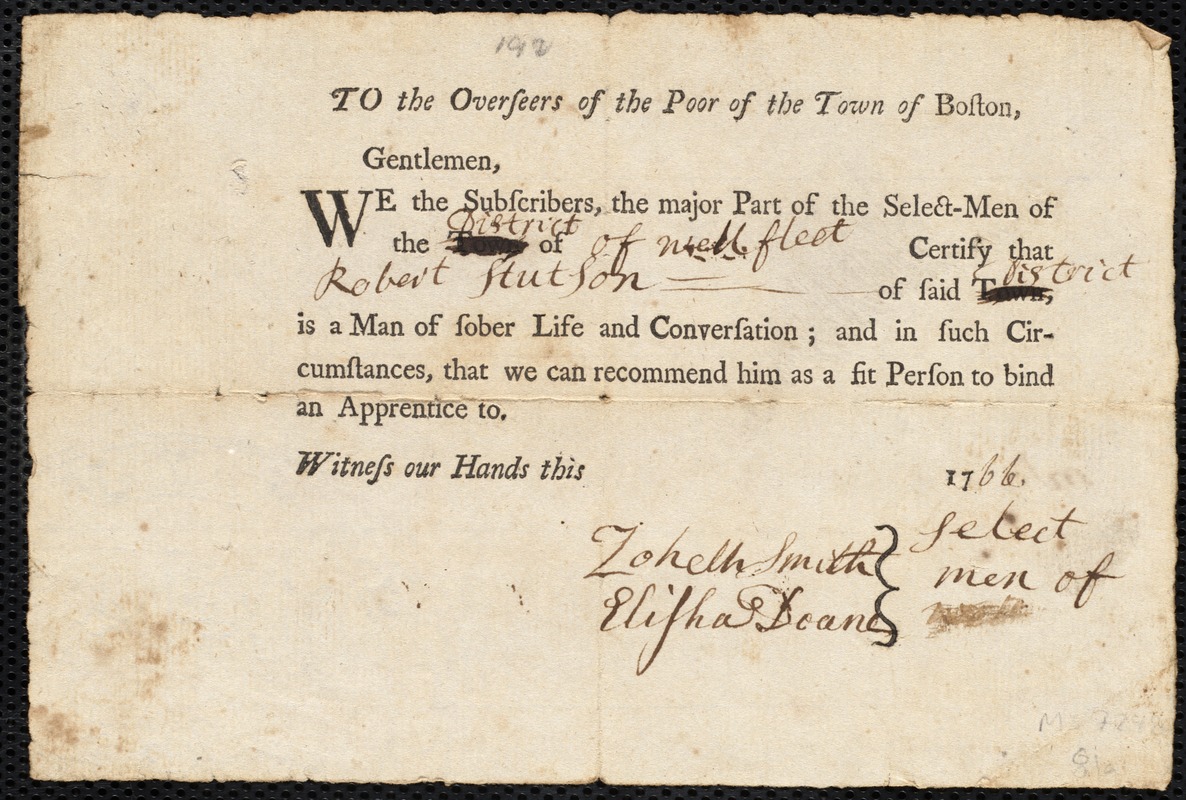 192
TO the Overſeers of the Poor of the Town of Boſton,
Gentlemen,
WE the Subſcribers, the major Part of the Select-Men of
District
the Town of of wellfleet Certify that
Robert Stutson of ſaid Town, District
is a Man of ſober Life and Converſation ; and in ſuch Cir-
cumſtances, that we can recommend him as a fit Perſon to bind
an Apprentice to.
Witneſs our Hands this 1766.
Zoheth Smith select
Eliſha Doane men of